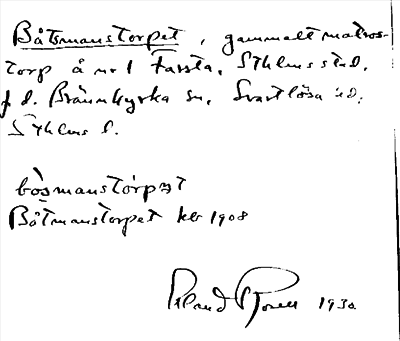 Båtsmanstorpet, gammalt matros-
torp å nr 1 Farsta, Sthlms stad,
f. d. Brännkyrka sn, Svartlösa hd,
Sthlms l.
båsmanstorpet
Båtmanstorpet kb 1908
1930